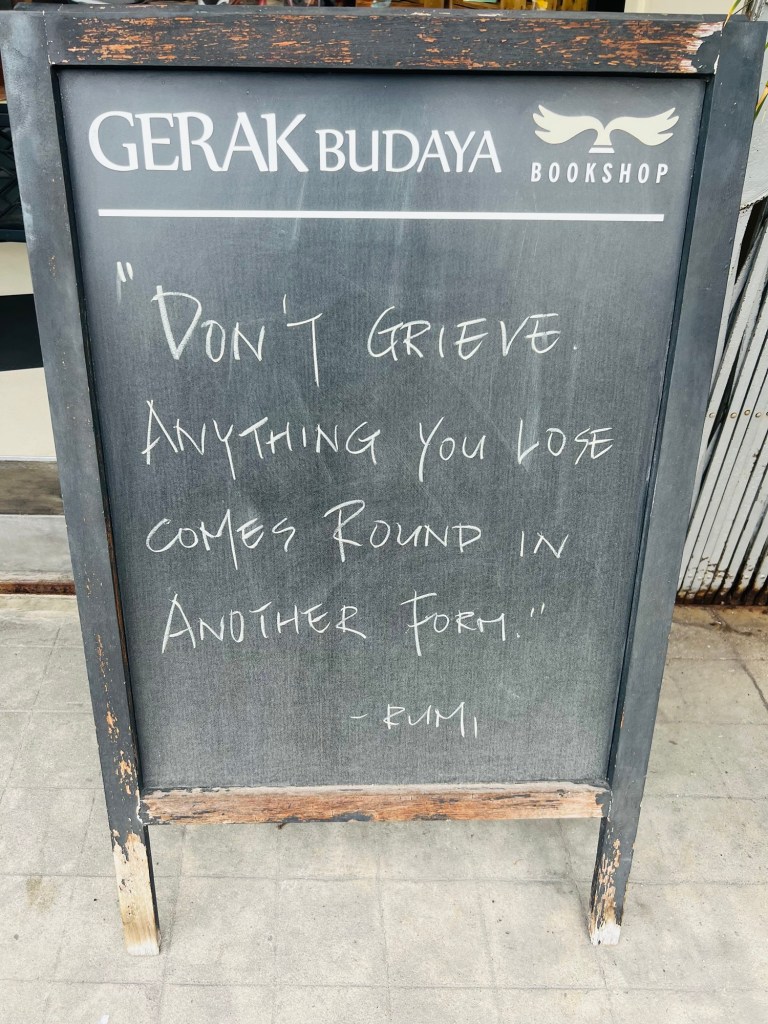 GERAK BUDAYA
BOOKSHOP
"DON'T GRIEVE.
ANYTHING YOU LOSE
COMES ROUND IN
ANOTHER FORM."
- RUMI